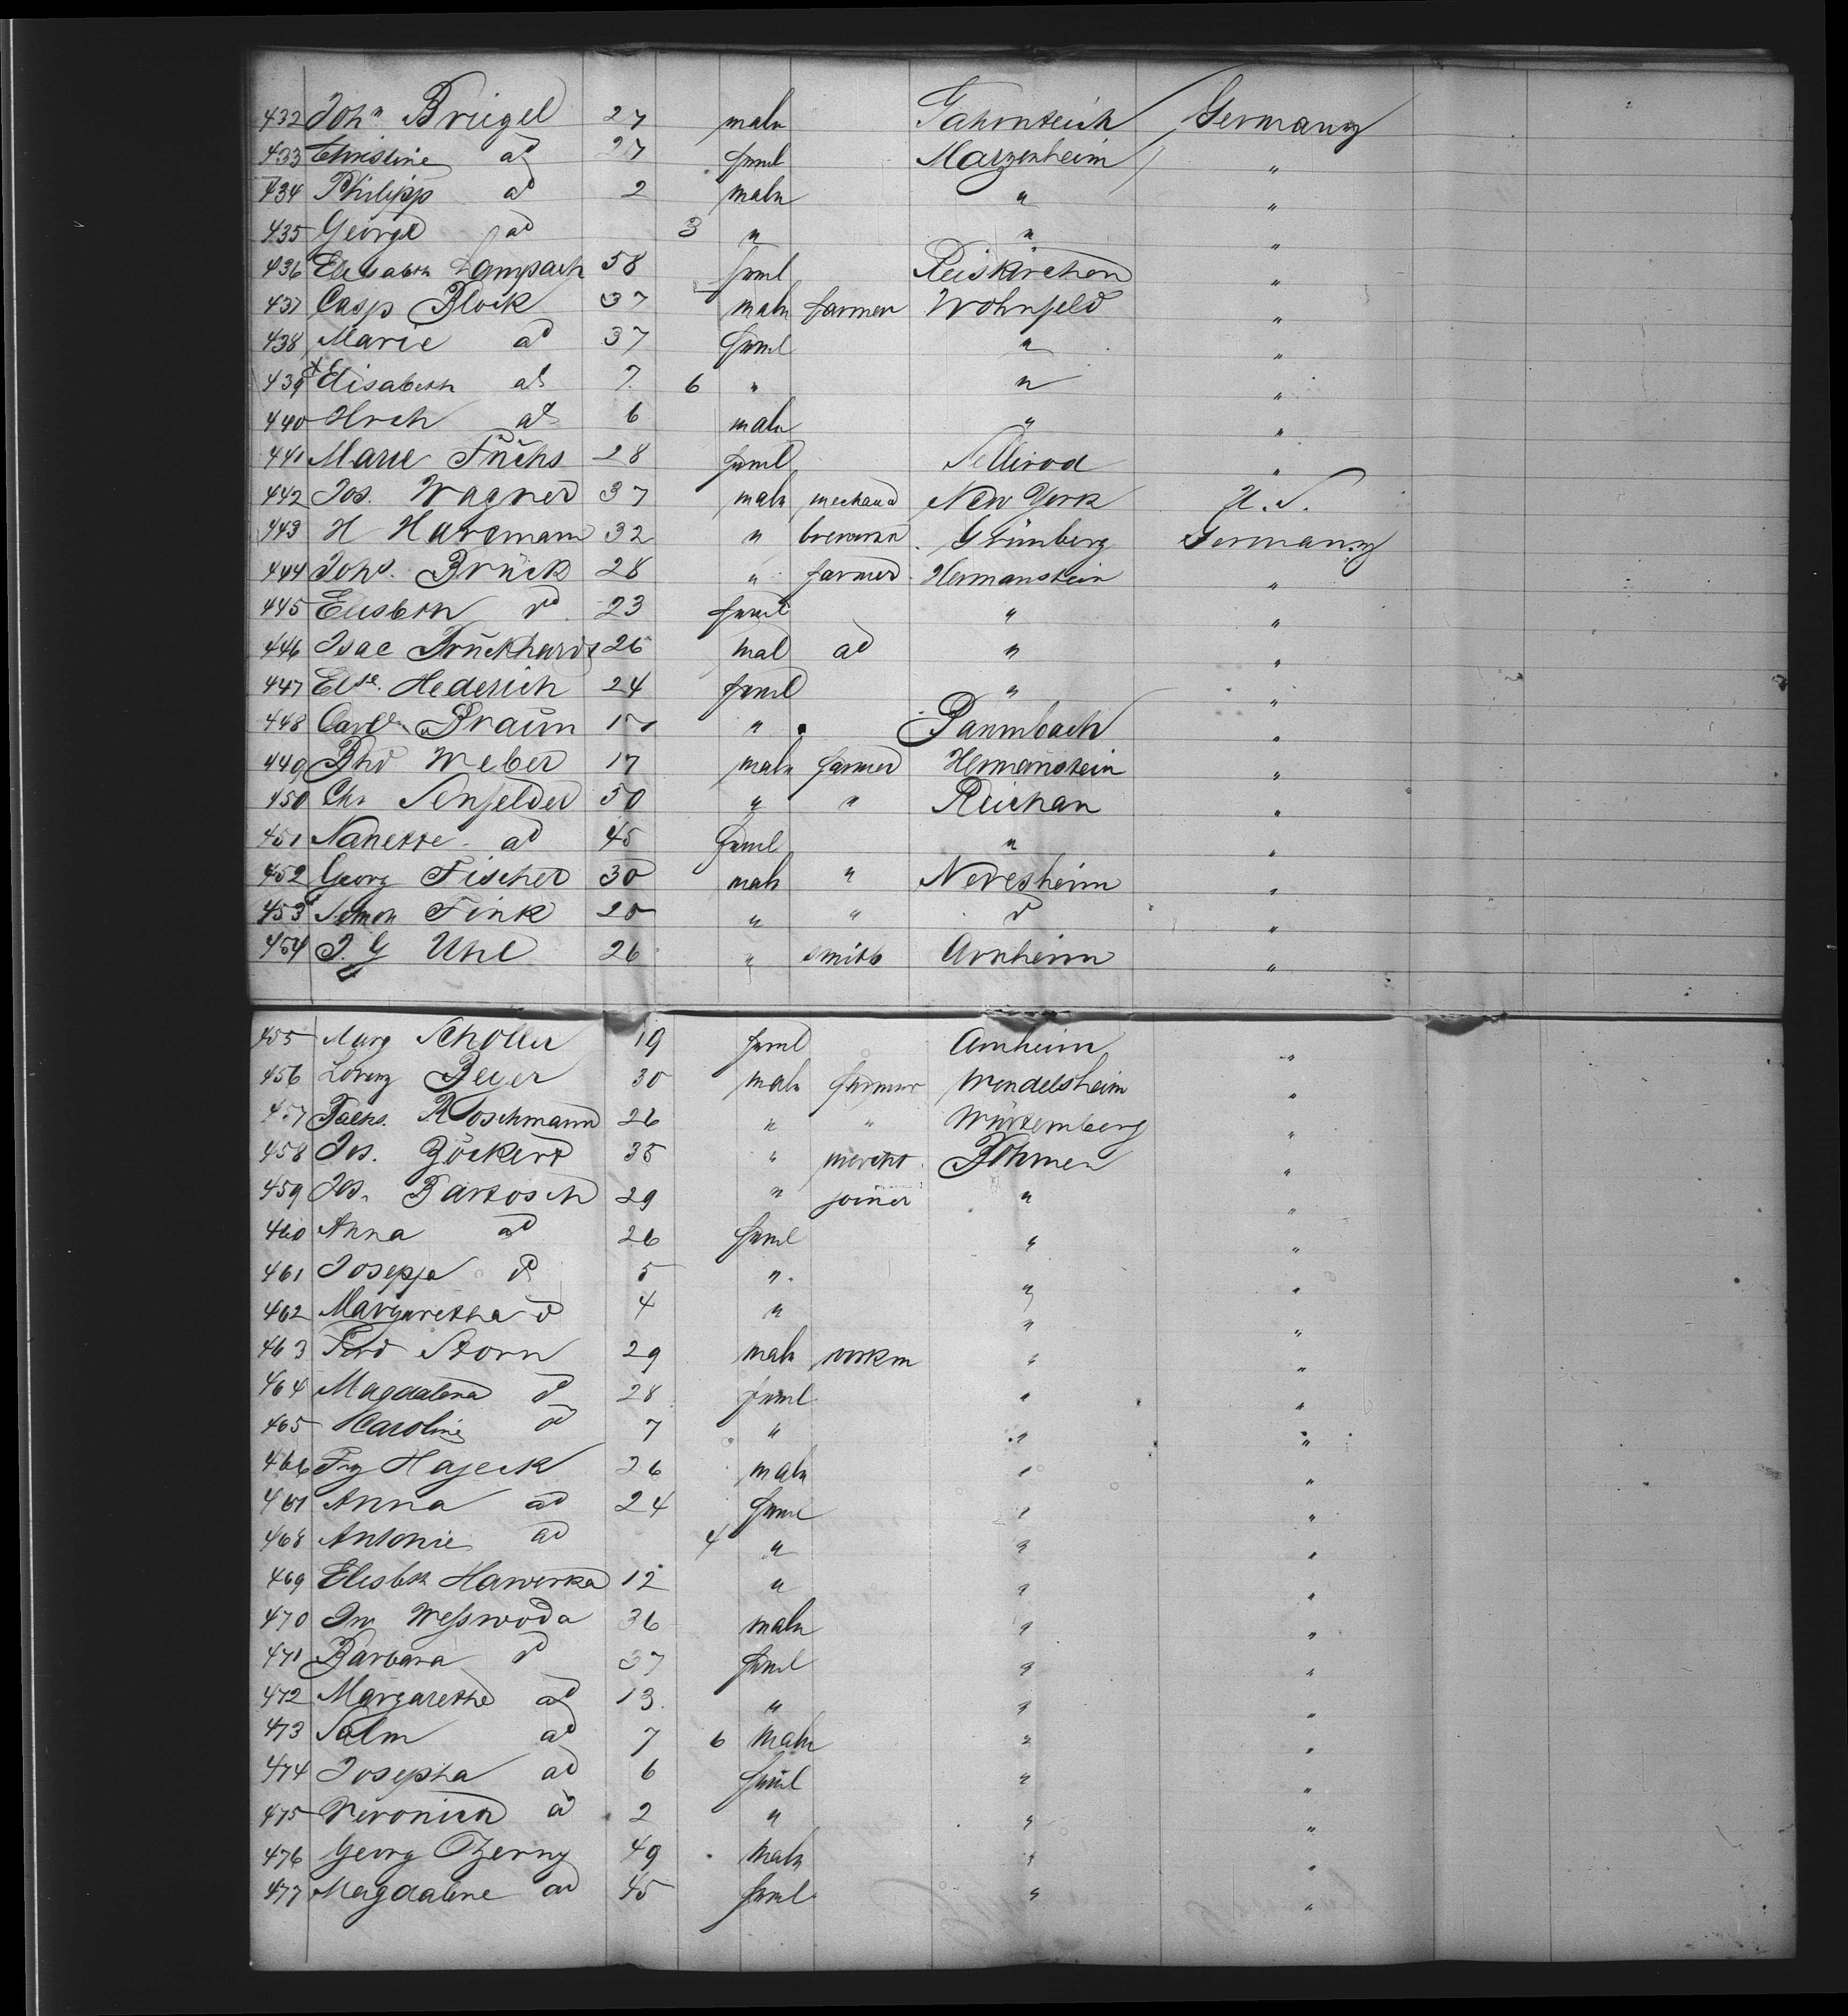 432 John Briegel 27 male Germany
433 Christine ad 27 feml Marzenheim "
434 Philipp ad 2 male " "
435 George ad 3 " " "
436 Elisabeth Lampach 58 feml Reiskirchen "
437 Casp Block 37 male farmer Wohnfeld "
438 Marie ad 37 feml " "
439 Elisabeth ad 7 6 " " "
440 Hrch ad 6 male " "
441 Marie Fuchs 28 feml Sellnrod "
442 Jos. Wagner 37 male New York U.S.
443 H Hartmann 32 " Grünberg Germany
444 Johs. Brück 28 " farmer Hermanstein "
445 Elisbth d 23 feml " "
446 Isac 26 mal ad " "
447 Else. Hederich 24 feml " "
448 Braun 17 " "
449 Weber 17 male farmer Hermanstein "
450 Chr Senfelder 50 " " "
451 Nanette ad 45 feml " "
452 Georg Fischer 30 male " Neresheim "
453 Simon Fink 20 " " d "
454 J. G Uhl 26 " smith Arnheim "
455 Marg Scholler 19 feml Arnheim "
456 Lorenz Beyer 30 male farmer Wendelsheim "
457 26 " " Würtemberg "
458 Jos. Göckert 35 " mercht Böhmen "
459 Jos. Bartosch 29 " joiner " "
460 Anna ad 26 feml " "
461 Josepfa d 5 " " "
462 Margaretha d 4 " " "
463 Ferd Storn 29 male workm " "
464 Magdalena d 28 feml " "
465 Karoline d 7 " " "
466 Frz Hajeck 26 male " "
467 Anna ad 24 feml " "
468 Antonie ad 4 " " "
469 Elisbth Hawerka 12 " " "
470 Wesswoda 36 male " "
471 Barbara d 37 feml " "
472 Margarethe ad 13 " " "
473 Salm ad 7 6 male " "
474 Josepha ad 6 feml " "
475 Veronica ad 2 " " "
476 Georg Czerny 49 male " "
477 Magdalene ad 45 feml " "